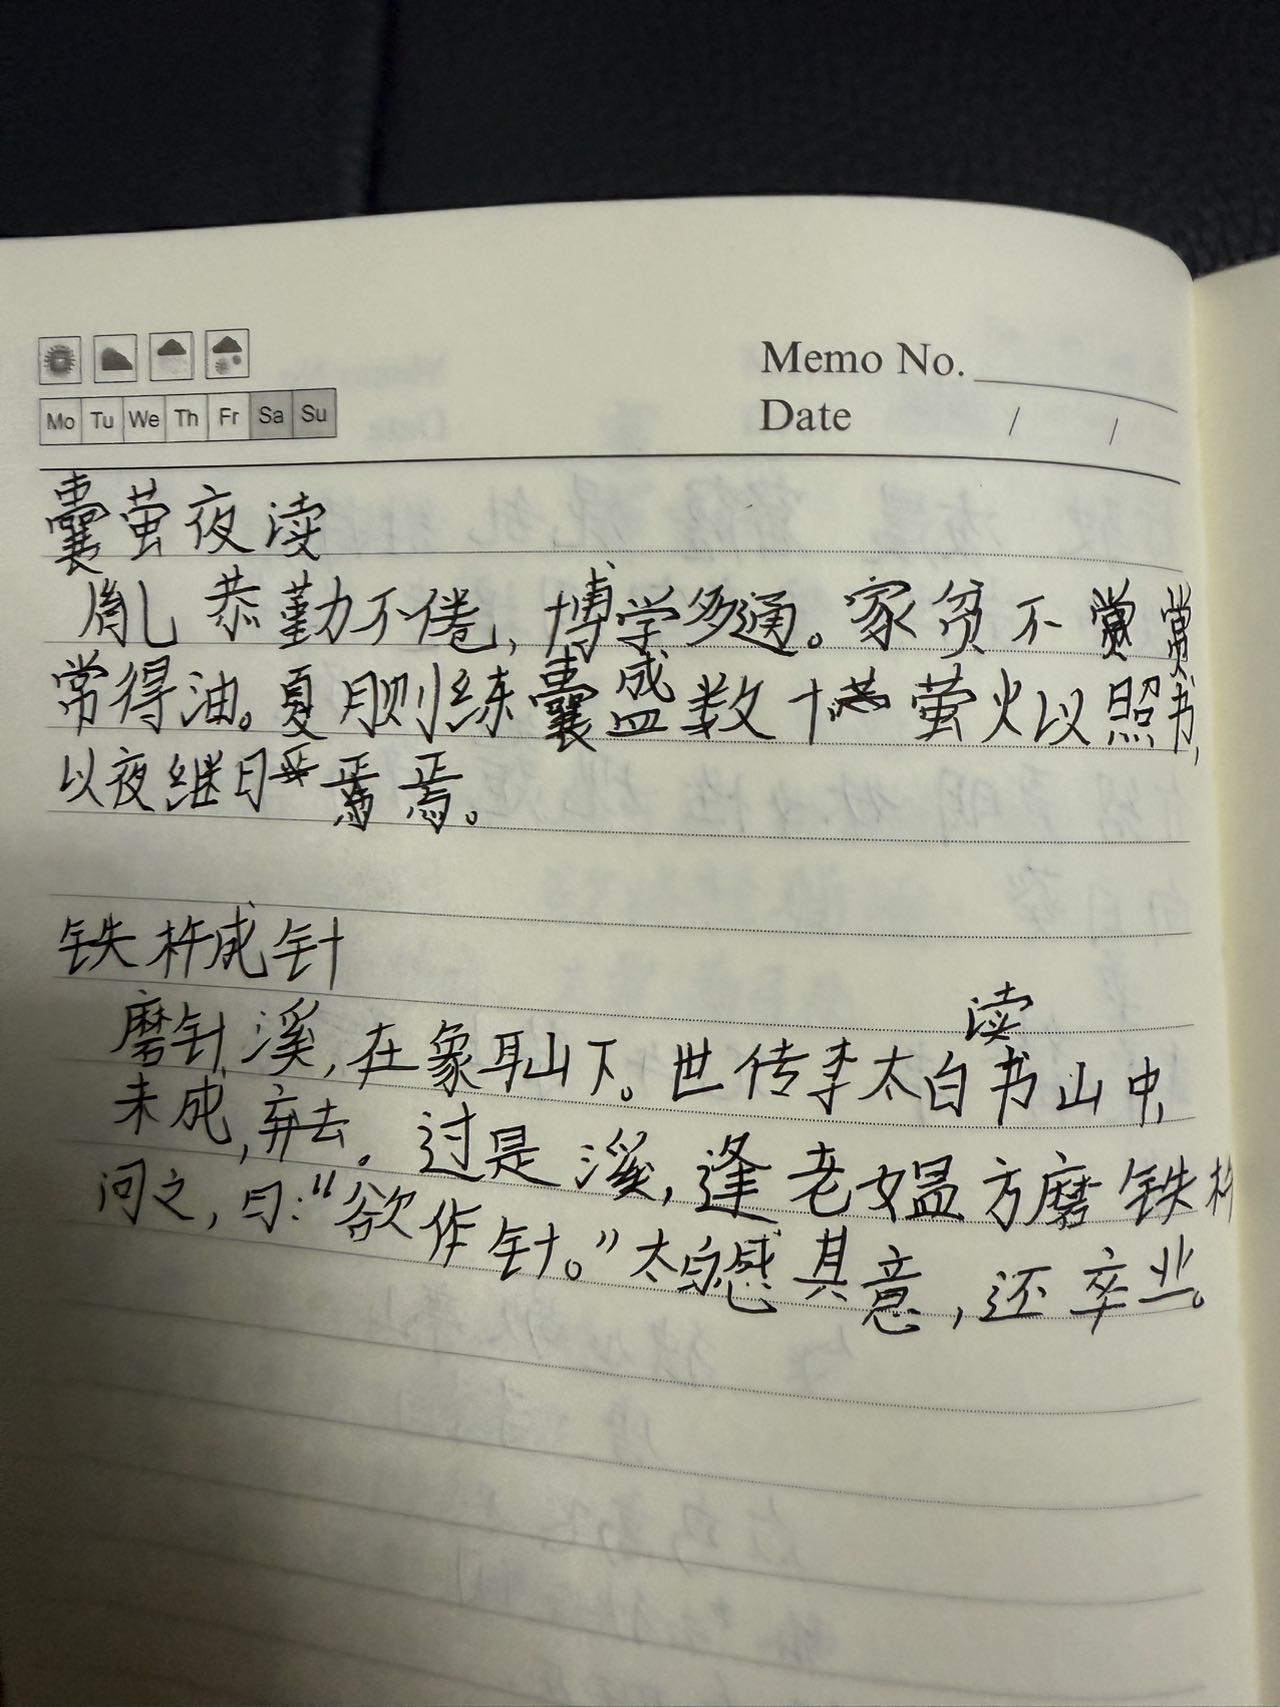 Memo No.
Mo Tu We Th Fr Sa Su
Date / /
囊萤夜读
胤恭勤不倦,博学多通。家贫不
常得油。夏月则练囊盛数十萤火以照书,
以夜继日焉焉。
铁杵成针
磨针溪,在象耳山下。世传李太白读书山中,
未成,弃去。过是溪,逢老媪方磨铁杵
问之,曰:“欲作针。”太白感其意,还卒业。